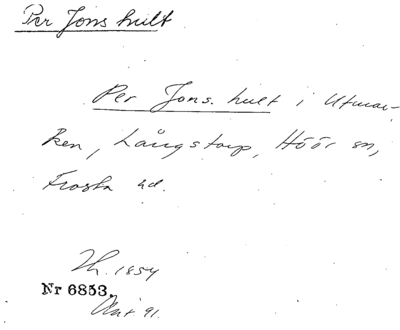 Per Jons hult
Per Jons. hult i Utmar-
ken, Långstorp, Höör sn,
Frosta hd.
Th. 1854
Nr 6853.
Ant 91.